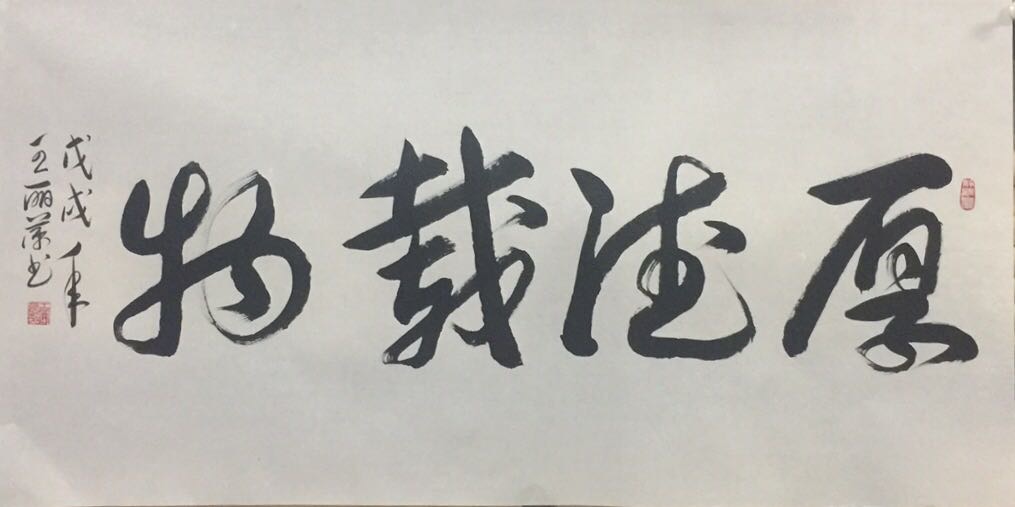 厚德载物
戊戌年
王丽荣书